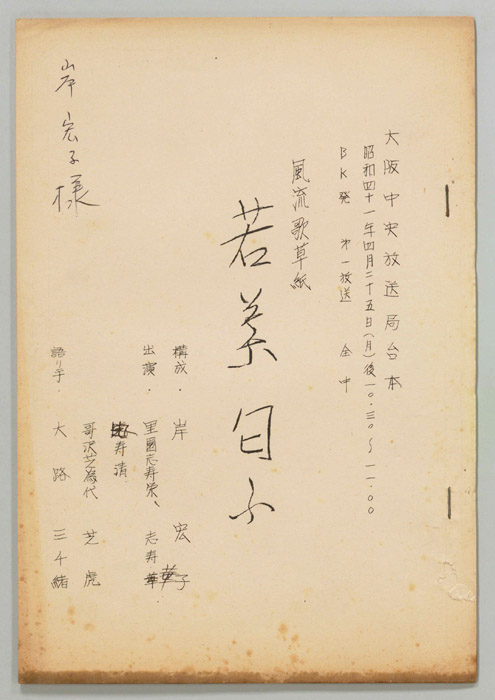 大阪中央放送局台本
昭和四十一年四月二十五日(月)後一〇.三〇～一一.〇〇
BK発 オ一放送 全中
風流歌草紙
若葉匂ふ
構成・岸 宏子
出演・里園志寿栄、志寿華
寿清
哥沢芝為代 芝虎
語り手・大路 三千緒
岸宏子様